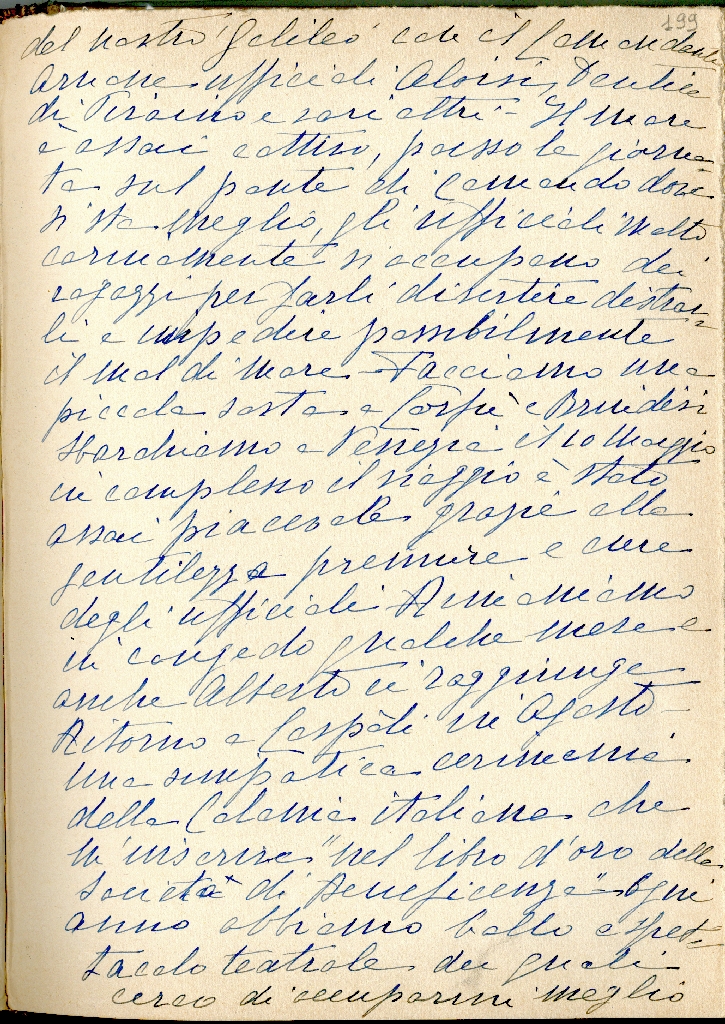 199
del nostro "Galileo" con il Comandante
ufficiali Aloisi, Dentice
di Piraino e vari altri - Il mare
è assai cattivo, passo la giorna=
ta sul ponte di Comando dove
si sta meglio, gli ufficiali molto
carinamente si occupano dei
ragazzi per farli divertire distrar=
li e impedire possibilmente
il mal di mare - Facciamo una
piccola sosta a Corfù e Brindisi
sbarchiamo a Venezia il 10 Maggio
in complesso il viaggio è stato
assai piacevole grazie alla
gentilezza premure e cure
degli ufficiali
in congedo qualche mese e
anche Alberto ci raggiunge
Ritorno a in Agosto -
una simpatica cerimonia
della Colonia italiana che
m'inscrive "nel libro d'oro della
Società di Beneficenza" - Ogni
anno abbiamo ballo e spet=
tacolo teatrale dei quali
cerco di occuparmi meglio